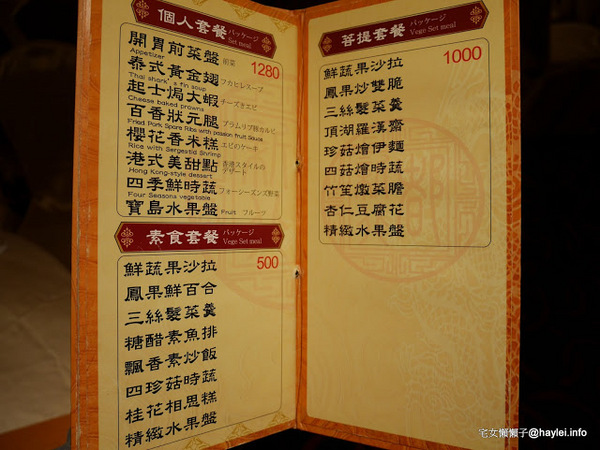 個人套餐 パッケージ
Set meal
開胃前菜盤 前菜
1280
Appetizer
泰式黃金翅 フカヒレスープ
Thai shark's fin soup
起士焗大蝦 チーズきエビ
Cheese baked prawns
百香狀元腿 プラムリブ豚カルビ
Fried Pork Spare Ribs with passion fruit Sauce
櫻花香米糕 エビのケーキ
Rice with Sergestid Shrimp
港式美甜點 香港スタイルの
デザート
Hong Kong-style dessert
四季鮮時蔬 フォーシーズンズ野菜
Four Seasons vegetable
寶島水果盤 Fruit フルーツ
素食套餐 パッケージ
Vege Set meal
500
鮮蔬果沙拉
鳳果鮮百合
三絲髮菜羹
糖醋素魚排
飄香素炒飯
四珍菇時蔬
桂花相思糕
精緻水果盤
菩提套餐 パッケージ
Vege Set meal
1000
鮮蔬果沙拉
鳳果炒雙脆
三絲髮菜羹
頂湖羅漢齋
珍菇燴伊麵
四菇燴時蔬
竹笙燉菜膽
杏仁豆腐花
精緻水果盤
宅女懶懶子@haylei.info